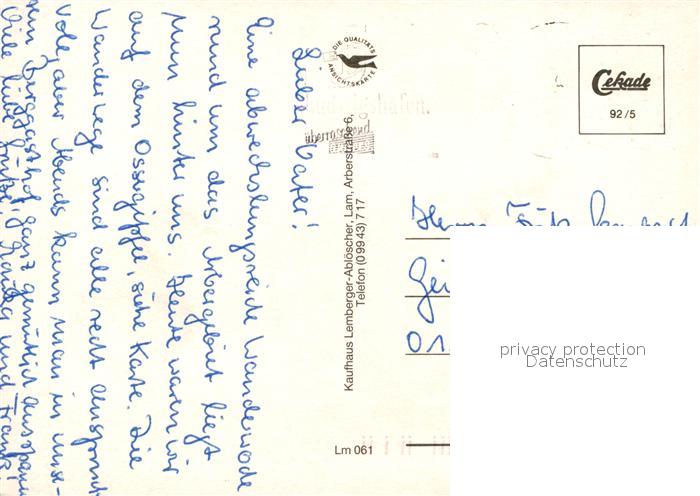 Lieber Vater!
Eine abwechslungsreiche Wanderwoche
rund um das Arbergebiet liegt
nun hinter uns. Heute waren wir
auf dem Osser­gipfel, siehe Karte. Die
Wanderwege sind alle recht anspruchs-
voll, aber Abends kann man in unse-
rem Berggasthof ganz gemütlich ausspannen
Viele liebe Grüße, und Frank!
DIE QUALITÄTS
ANSICHTSKARTE
Kaufhaus Lemberger-Ablöscher, Lam, Arberstraße 6,
Telefon (0 99 43) 7 17
Lm 061
Cekade
92/5
Herrn
Gei
01
privacy protection
Datenschutz